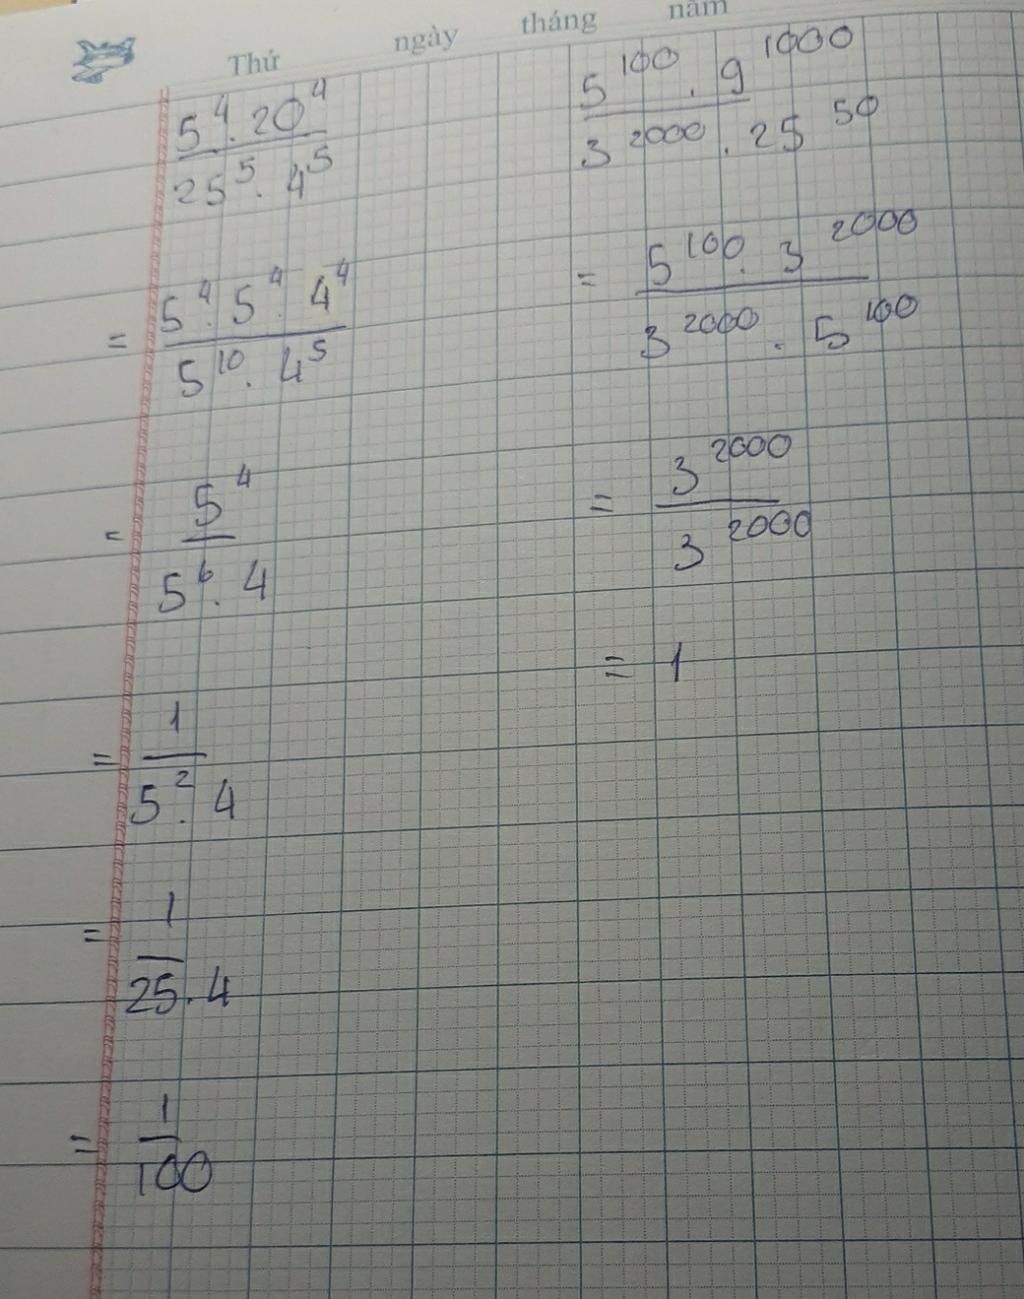 Thứ ngày tháng năm
5⁴ . 20⁴
25⁵ . 4⁵
= 5⁴ . 5⁴ . 4⁴
5¹⁰ . 4⁵
= 5⁴
5⁶ . 4
= 1
5² . 4
= 1
25 . 4
= 1
100
5¹⁰⁰ . 9¹⁰⁰⁰
3²⁰⁰⁰ . 25⁵⁰
= 5¹⁰⁰ . 3²⁰⁰⁰
3²⁰⁰⁰ . 5¹⁰⁰
= 3²⁰⁰⁰
3²⁰⁰⁰
= 1